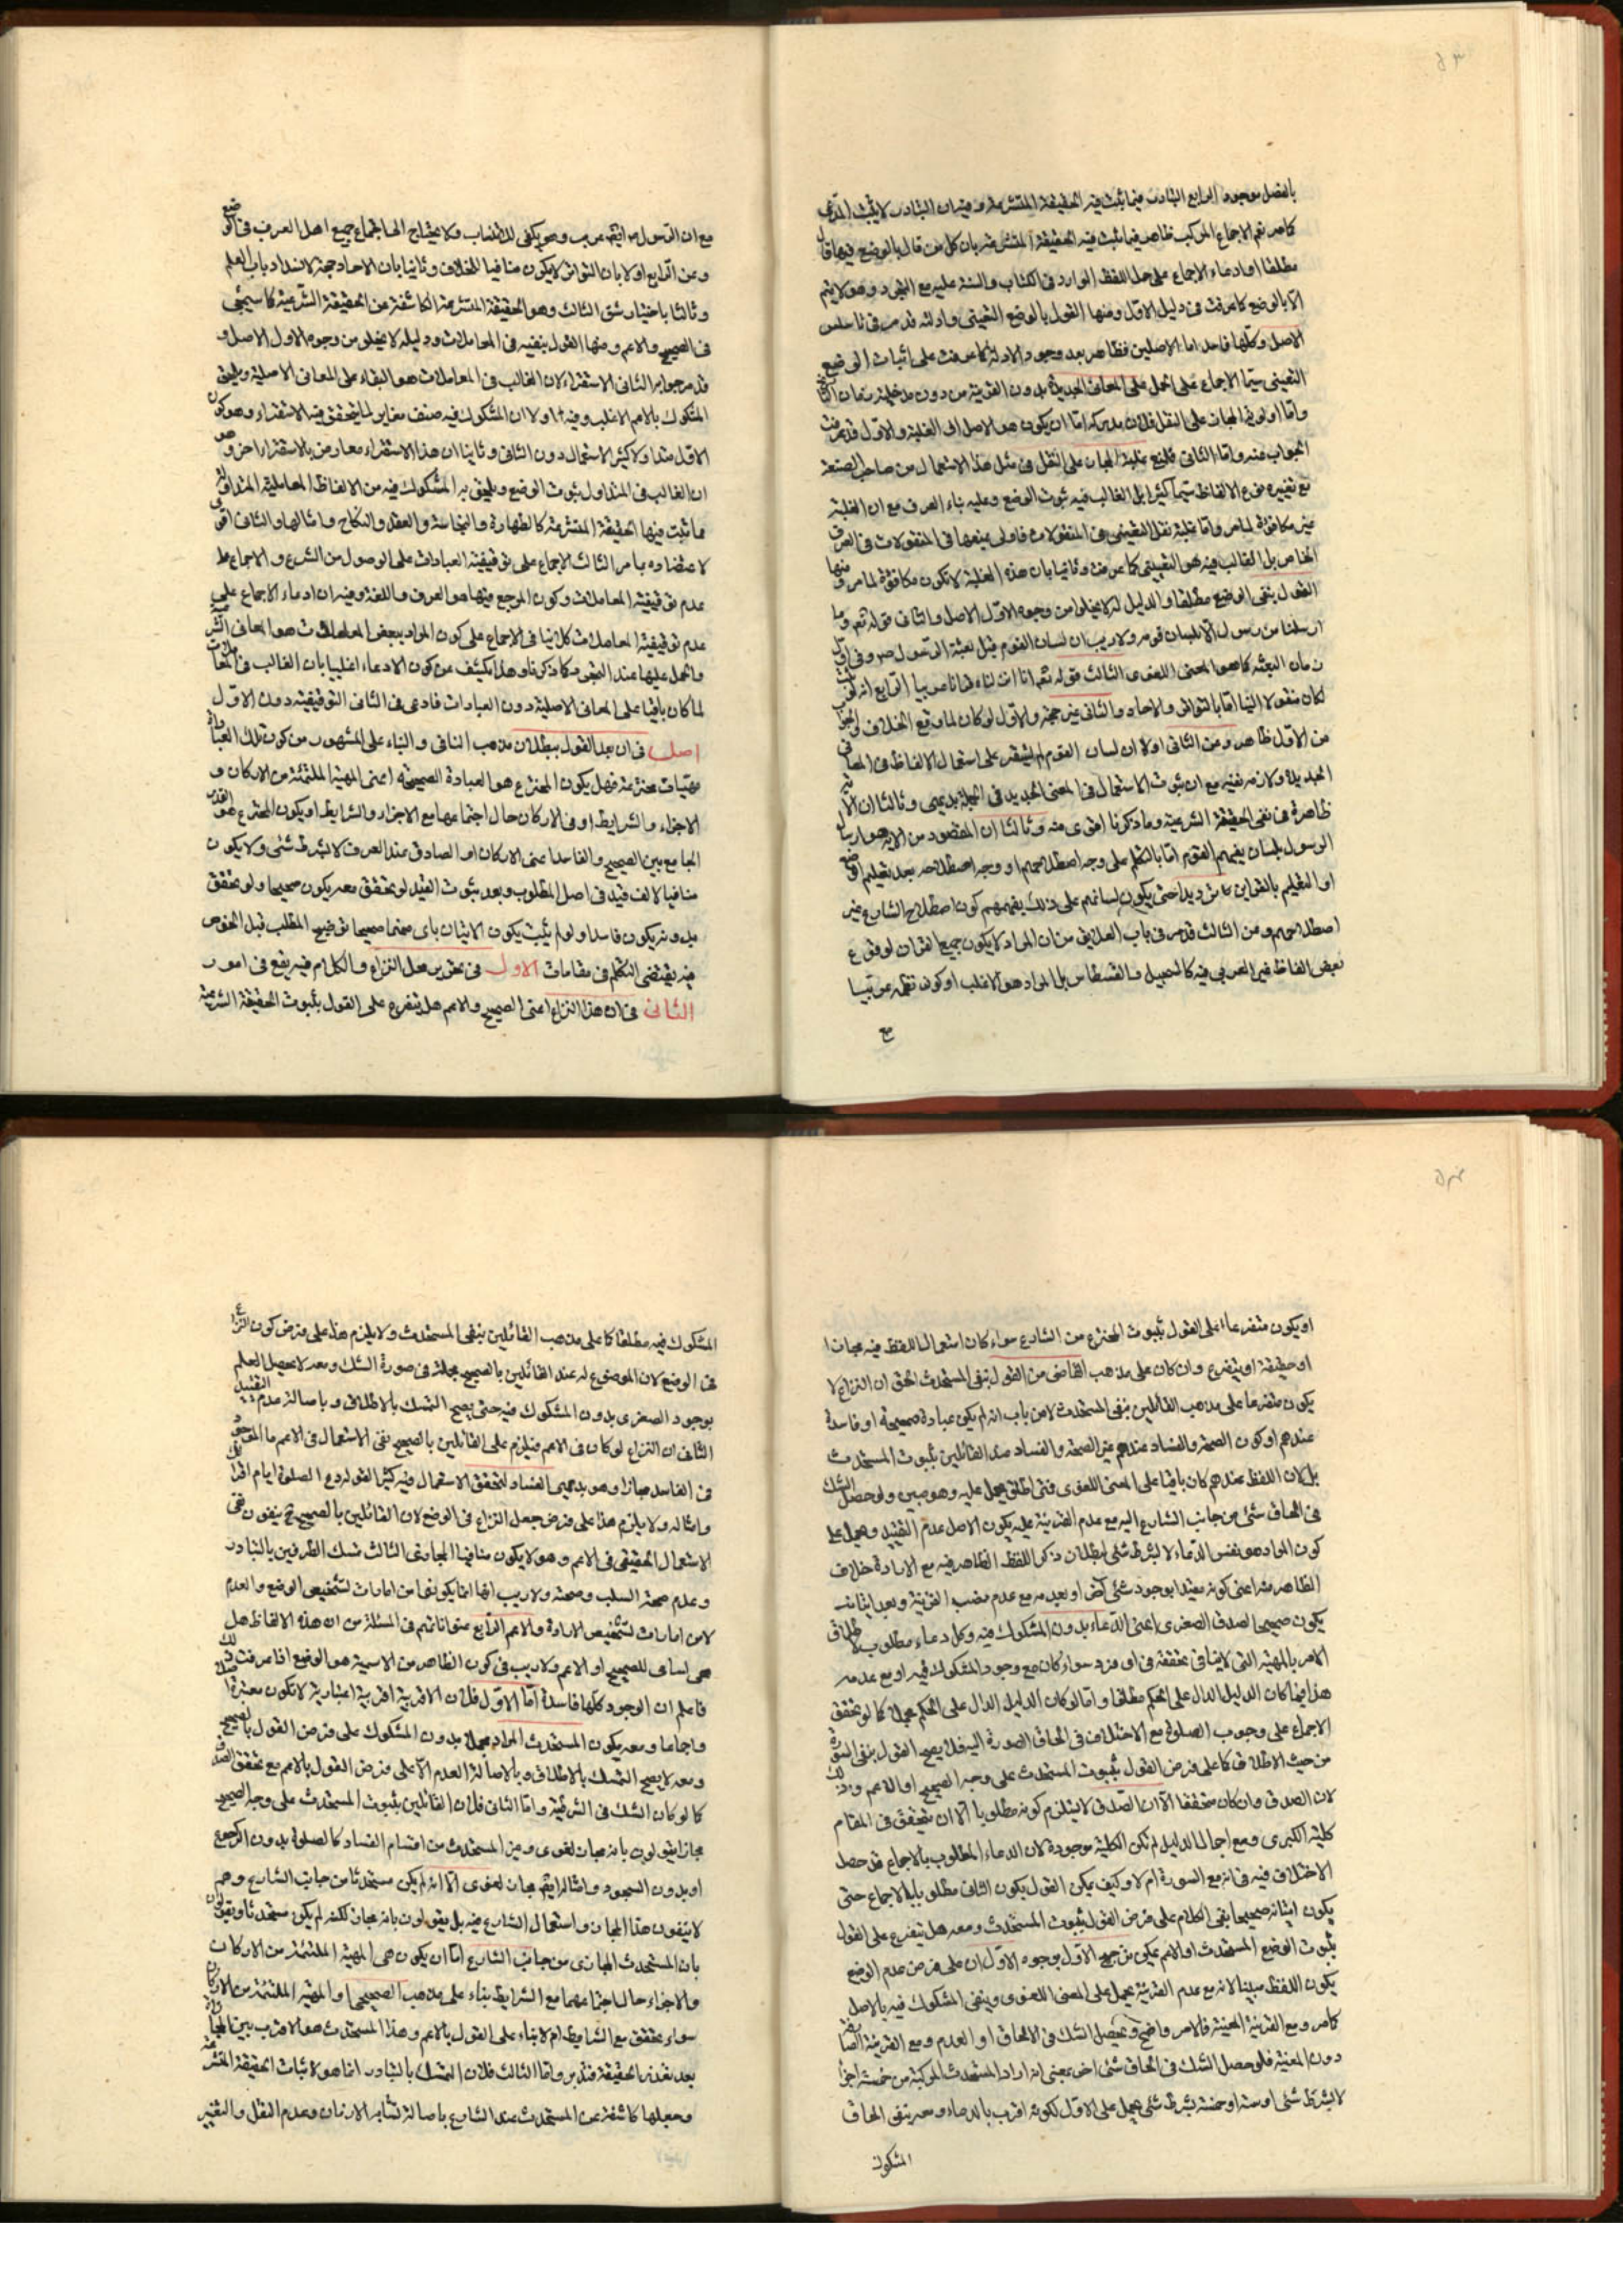 ۵۳
بالفصل بوجود الرابع التبادر فيما يثبت فيه الحقيقة المتشرعة وفيه ان التبادر لا يثبت المدعى
كما مر نعم الاجماع المركب ظاهر فيما يثبت فيه الحقيقة المتشرعة بان كل من قال بالوضع فيها قال
مطلقا او ادعاء الاجماع على حمل اللفظ الوارد فى الكتاب والسنة عليه مع التجرد وهو لا يتم
الا بالوضع كما عرفت فى دليل الاول ومنها القول بالوضع التعينى وادلته قد مر فى تاسيس
الاصل وكلها فاسد اما الاصلين فظاهر بعد وجود الادلة كما عرفت على اثبات الوضع
التعيينى سيما الاجماع على الحمل على المعانى الجديدة بدون القرينة من دون مدخلية زمان
واما اولوية المجاز على النقل فلان مدركه اما ان يكون هو الاصل او الغلبة والاول قد عرفت
الجواب عنه واما الثانى فلمنع غلبة المجاز على النقل فى مثل هذا الاستعمال من صاحب الصنعة
مع تغييره الالفاظ سيما كثيرا بل الغالب فيه ثبوت الوضع وعليه بناء العرف مع ان الغلبة
غير مكافؤة لما مر واما غلبة نقل التعينى فى المنقولات فاولى بمنعها فى المنقولات فى العرف
الخاص بل الغالب فيه هو التعيينى كما عرفت وثانيا بان هذه الغلبة لا تكون مكافؤة لما مر ومنها
القول بنفى الوضع مطلقا والدليل له لا يخلوا من وجوه الاول الاصل والثانى قوله تع وما
ارسلنا من رسول الا بلسان قومه ولا ريب ان لسان القوم قبل بعثة الرسول ص وفى اول
زمان البعثه كما هو المعنى اللغوى الثالث قوله تع انا انزلناه قرانا عربيا الرابع انه لو ثبت
لكان منقولا الينا اما بالتواتر والاحاد والثانى غير حجة والاول لو كان لما وقع الخلاف والجواب
من الاول ظاهر ومن الثانى اولا ان لسان القوم لم يستقر على استعمال الالفاظ فى المعانى
الجديدة ولازمه نفيه مع ان ثبوت الاستعمال فى المعنى الجديد فى الجملة بديهى وثالثا ان الاية
ظاهرة فى نفى الحقيقة الشرعية وما ذكرنا اقوى منه وثالثا ان المقصود من الاية هو ارسال
الرسول بلسان يفهمهم القوم اما بالتكلم على وجه اصطلاحهم او وجه اصطلاحه بعد تعليم الوضع
او التعليم بالقراين حتى يكون لسانهم على ذلك بفهمهم كون اصطلاح الشارع غير
اصطلاحهم ومن الثالث قد مر فى باب العلايق من ان المراد لا يكون جميع القران لوقوع
بعض الفاظ غير العربى فيه كالسجيل والقسطاس بل المراد هو الاغلب او كون نقله عربيا
مع
مع ان الرسول ص ايضا عربى وهو يكفى للانتساب ولا يحتاج الى اجتماع جميع اهل العرف فى الوضع
وعن الرابع اولا بان التواتر لا يكون منافيا للخلاف وثانيا بان الاحاد حجة لانسداد باب العلم
وثالثا باختيار شق الثالث وهو الحقيقة المتشرعة الكاشفة عن الحقيقة الشرعية كما سيجئى
فى الصحيح والاعم ومنها القول بنفيه فى المعاملات ودليله لا يخلو من وجوه الاول الاصل و
قد مر جوابه الثانى الاستقراء لان الغالب فى المعاملات هو البقاء على المعانى الاصلية ويلحق
المشكوك بالاعم الاغلب وفيه اولا ان المشكوك فيه صنف مغاير لما يتحقق فيه الاستقراء وهو كون
الاقل متداولا كثير الاستعمال دون الثانى وثانيا ان هذا الاستقراء معارض بالاستقراء اخر وهو
ان الغالب فى المتداول ثبوت الوضع ويلحق به المشكوك فيه من الالفاظ المعاملية المتداولة
مما ثبت فيها الحقيقة المتشرعة كالطهارة والنجاسة والعقد والنكاح وامثالها والثانى اقوى
لاعتضاده بما مر الثالث الاجماع على توقيفية العبادات على الوصول من الشرع والاجماع على
عدم توقيفية المعاملات وكون المرجع فيها هو العرف واللغة وفيه ان ادعاء الاجماع على
عدم توقيفية المعاملات كل ينافى الاجماع على كون المراد ببعض المعاملات هو المعانى الشرعية
والحمل عليها عند التجرد كما ذكرنا وهذا يكشف عن كون الادعاء اغلبيا بان الغالب فى المعاملات
لما كان باقيا على المعانى الاصلية دون العبادات فادعى فى الثانى التوقيفية دون الاول
اصل فى ان بعد القول ببطلان مذهب النافى والبناء على المشهور من كون تلك العبادات
مهيات مخترعة فهل يكون المخترع هو العبادة الصحيحه اعنى المهية الملتئمة من الاركان و
الاجزاء والشرايط او فى الاركان حال اجتماعها مع الاجزاء والشرايط او يكون المخترع هو القدر
الجامع بين الصحيح والفاسد اعنى الاركان او الصادق عند العرف لا بشرط شئى ولا يكون
منافيا لالف قيد فى اصل المطلوب وبعد ثبوت القيد لو تحقق معه يكون صحيحا ولو تحقق
بدونه يكون فاسدا ولو لم يثبت يكون الاتيان باى منهما صحيحا توضيح المطلب قبل الخوض
فيه يقتضى التكلم فى مقامات الاول فى تحرير محل النزاع والكلام فيه يقع فى امور
الثانى فى ان هذا النزاع اعنى الصحيح والاعم هل يتفرع على القول بثبوت الحقيقة الشرعية
۵۴
او يكون متفرعا على القول بثبوت المخترع من الشارع سواء كان استعمال اللفظ فيه مجازا
او حقيقة او يتفرع وان كان على مذهب القاضى من القول بنفى المستحدث الحق ان النزاع لا
يكون متفرعا على مذهب القائلين بنفى المستحدث لا من باب انه لم يكن عبادة صحيحة او فاسدة
عندهم او كون الصحة والفساد عندهم غير الصحة والفساد عند القائلين بثبوت المستحدث
بل لان اللفظ عندهم كان باقيا على المعنى اللغوى فمتى اطلق يحمل عليه وهو مبين ولو حصل الشك
فى الحاق شئ من جانب الشارع اليه مع عدم القرينة عليه يكون الاصل عدم التقييد ويحمل على
كون المراد هو نفس الدعاء لا بشرط شئى لبطلان ذكر اللفظ الظاهر فيه مع الارادة خلاف
الظاهر منه اعنى كونه مقيدا بوجود شئى اخر او بعدمه مع عدم نصب القرينة وبعد اتيانه
يكون صحيحا لصدق الصغرى اعنى الدعاء بدون المشكوك فيه وكل دعاء مطلوب لاطلاق
الامر بالمهية التى لا ينافى تحققه فى اى فرد سواء كان مع وجود المشكوك فيه او مع عدمه
هذا فيما كان الدليل الدال على الحكم مطلقا واما لو كان الدليل الدال على الحكم مجملا كما لو تحقق
الاجماع على وجوب الصلوة مع الاختلاف فى الحاق السورة اليه فلا يصح القول بنفى السورة
من حيث الاطلاق كما على فرض القول بثبوت المستحدث على وجه الصحيح او الاعم وذلك
لان الصدق وان كان متحققا الا ان الصدق لا يستلزم كونه مطلوبا الا ان يتحقق فى المقام
كلية الكبرى ومع اجمال الدليل لم تكن الكلية موجودة لان الدعاء المطلوب بالاجماع قد حصل
الاختلاف فيه فى انه مع السورة ام لا وكيف يمكن القول بكون الثانى مطلوبا بالاجماع حتى
يكون اتيانه صحيحا بقى الكلام على فرض القول بثبوت المستحدث ومعه هل يتفرع على القول
بثبوت الوضع المستحدث او الاعم يمكن ترجيح الاول بوجوه الاول ان على فرض عدم الوضع
يكون اللفظ مبينا لانه مع عدم القرينة يحمل على المعنى اللغوى وينتفى المشكوك فيه بالاصل
كما مر ومع القرينة المعينة فالامر واضح ويحصل الشك فى الالحاق او العدم ومع القرينة الصارفة
دون المعينة فلو حصل الشك فى الحاق شئى اخر بمعنى انه اراد المستحدث المركبة من خمسة اجزاء
لا بشرط شئى او ستة او خمسة بشرط شئى يحمل على الاول لكونه اقرب بالدعاء ومعه ينفى الحاق
المشكوك
المشكوك فيه مطلقا كما على مذهب القائلين بنفى المستحدث ولا يلزم هذا على فرض كون النزاع
فى الوضع لان الموضوع له عند القائلين بالصحيح مجملة فى صورة الشك ومعه لا يحصل العلم
بوجود الصغرى بدون المشكوك فيه حتى يصح التمسك بالاطلاق وباصالة عدم التقييد
الثانى ان النزاع لو كان فى الاعم فيلزم على القائلين بالصحيح نفى الاستعمال فى الاعم
فى الفاسد مجازا وهو بديهى الفساد لتحقق الاستعمال فيه كثيرا لقوله دع الصلوة ايام اقرائك
وامثاله ولا يلزم هذا على فرض جعل النزاع فى الوضع لان القائلين بالصحيح ح ينفون
الاستعمال الحقيقى فى الاعم وهو لا يكون منافيا المجازى الثالث تمسك الطرفين بالتبادر
وعدم صحة السلب وصحته ولا ريب انها انما يكونا من امارات لتشخيص الوضع والعدم
لا من امارات لتشخيص الارادة والاعم الرابع عنواناتهم فى المسئلة من ان هذه الالفاظ هل
هى اسامى للصحيح او الاعم ولا ريب فى كون الظاهر من الاسمية هو الوضع اذا عرفت ذلك
فاعلم ان الوجوه كلها فاسدة اما الاول فلان الاقربية اقربية اعتبارية لا تكون معتبرة
واجماعا ومعه يكون المستحدث المراد مجملا بدون المشكوك على فرض القول بالصحيح
ومعه لا يصح التمسك بالاطلاق وبالاصالة العدم الا على فرض القول بالاعم مع تحقق الصدق
كما لو كان الشك فى الشرطية واما الثانى فلان القائلين بثبوت المستحدث على وجه الصحيح
مجازا يقولون بانه مجاز لغوى وغير المستحدث من اقسام الفساد كالصلوة بدون الركوع
او بدون السجود وامثاله ايضا مجاز لغوى الا انه لم يكن مستحدثا من جانب الشارع وهم
لا ينفون هذا المجاز واستعمال الشارع فيه بل يقولون بانه مجاز لكنه لم يكن مستحدثا ويقولون
بان المستحدث المجازى من جانب الشارع اما ان يكون هى المهية الملتئمة من الاركان
والاجزاء حال اجتماعهما مع الشرايط بناء على مذهب الصحيحى او المهية الملتئمة من الاركان
سواء تحقق مع الشرايط ام لا بناء على القول بالاعم وهذا المستحدث هو الاقرب بين المجازات
بعد تعذر الحقيقة فتدبر واما الثالث فلان التمسك بالتبادر انما هو لاثبات الحقيقة المتشرعة
وجعلها كاشفة عن المستحدث عند الشارع باصالة تشابه الازمان وعدم النقل والتغيير